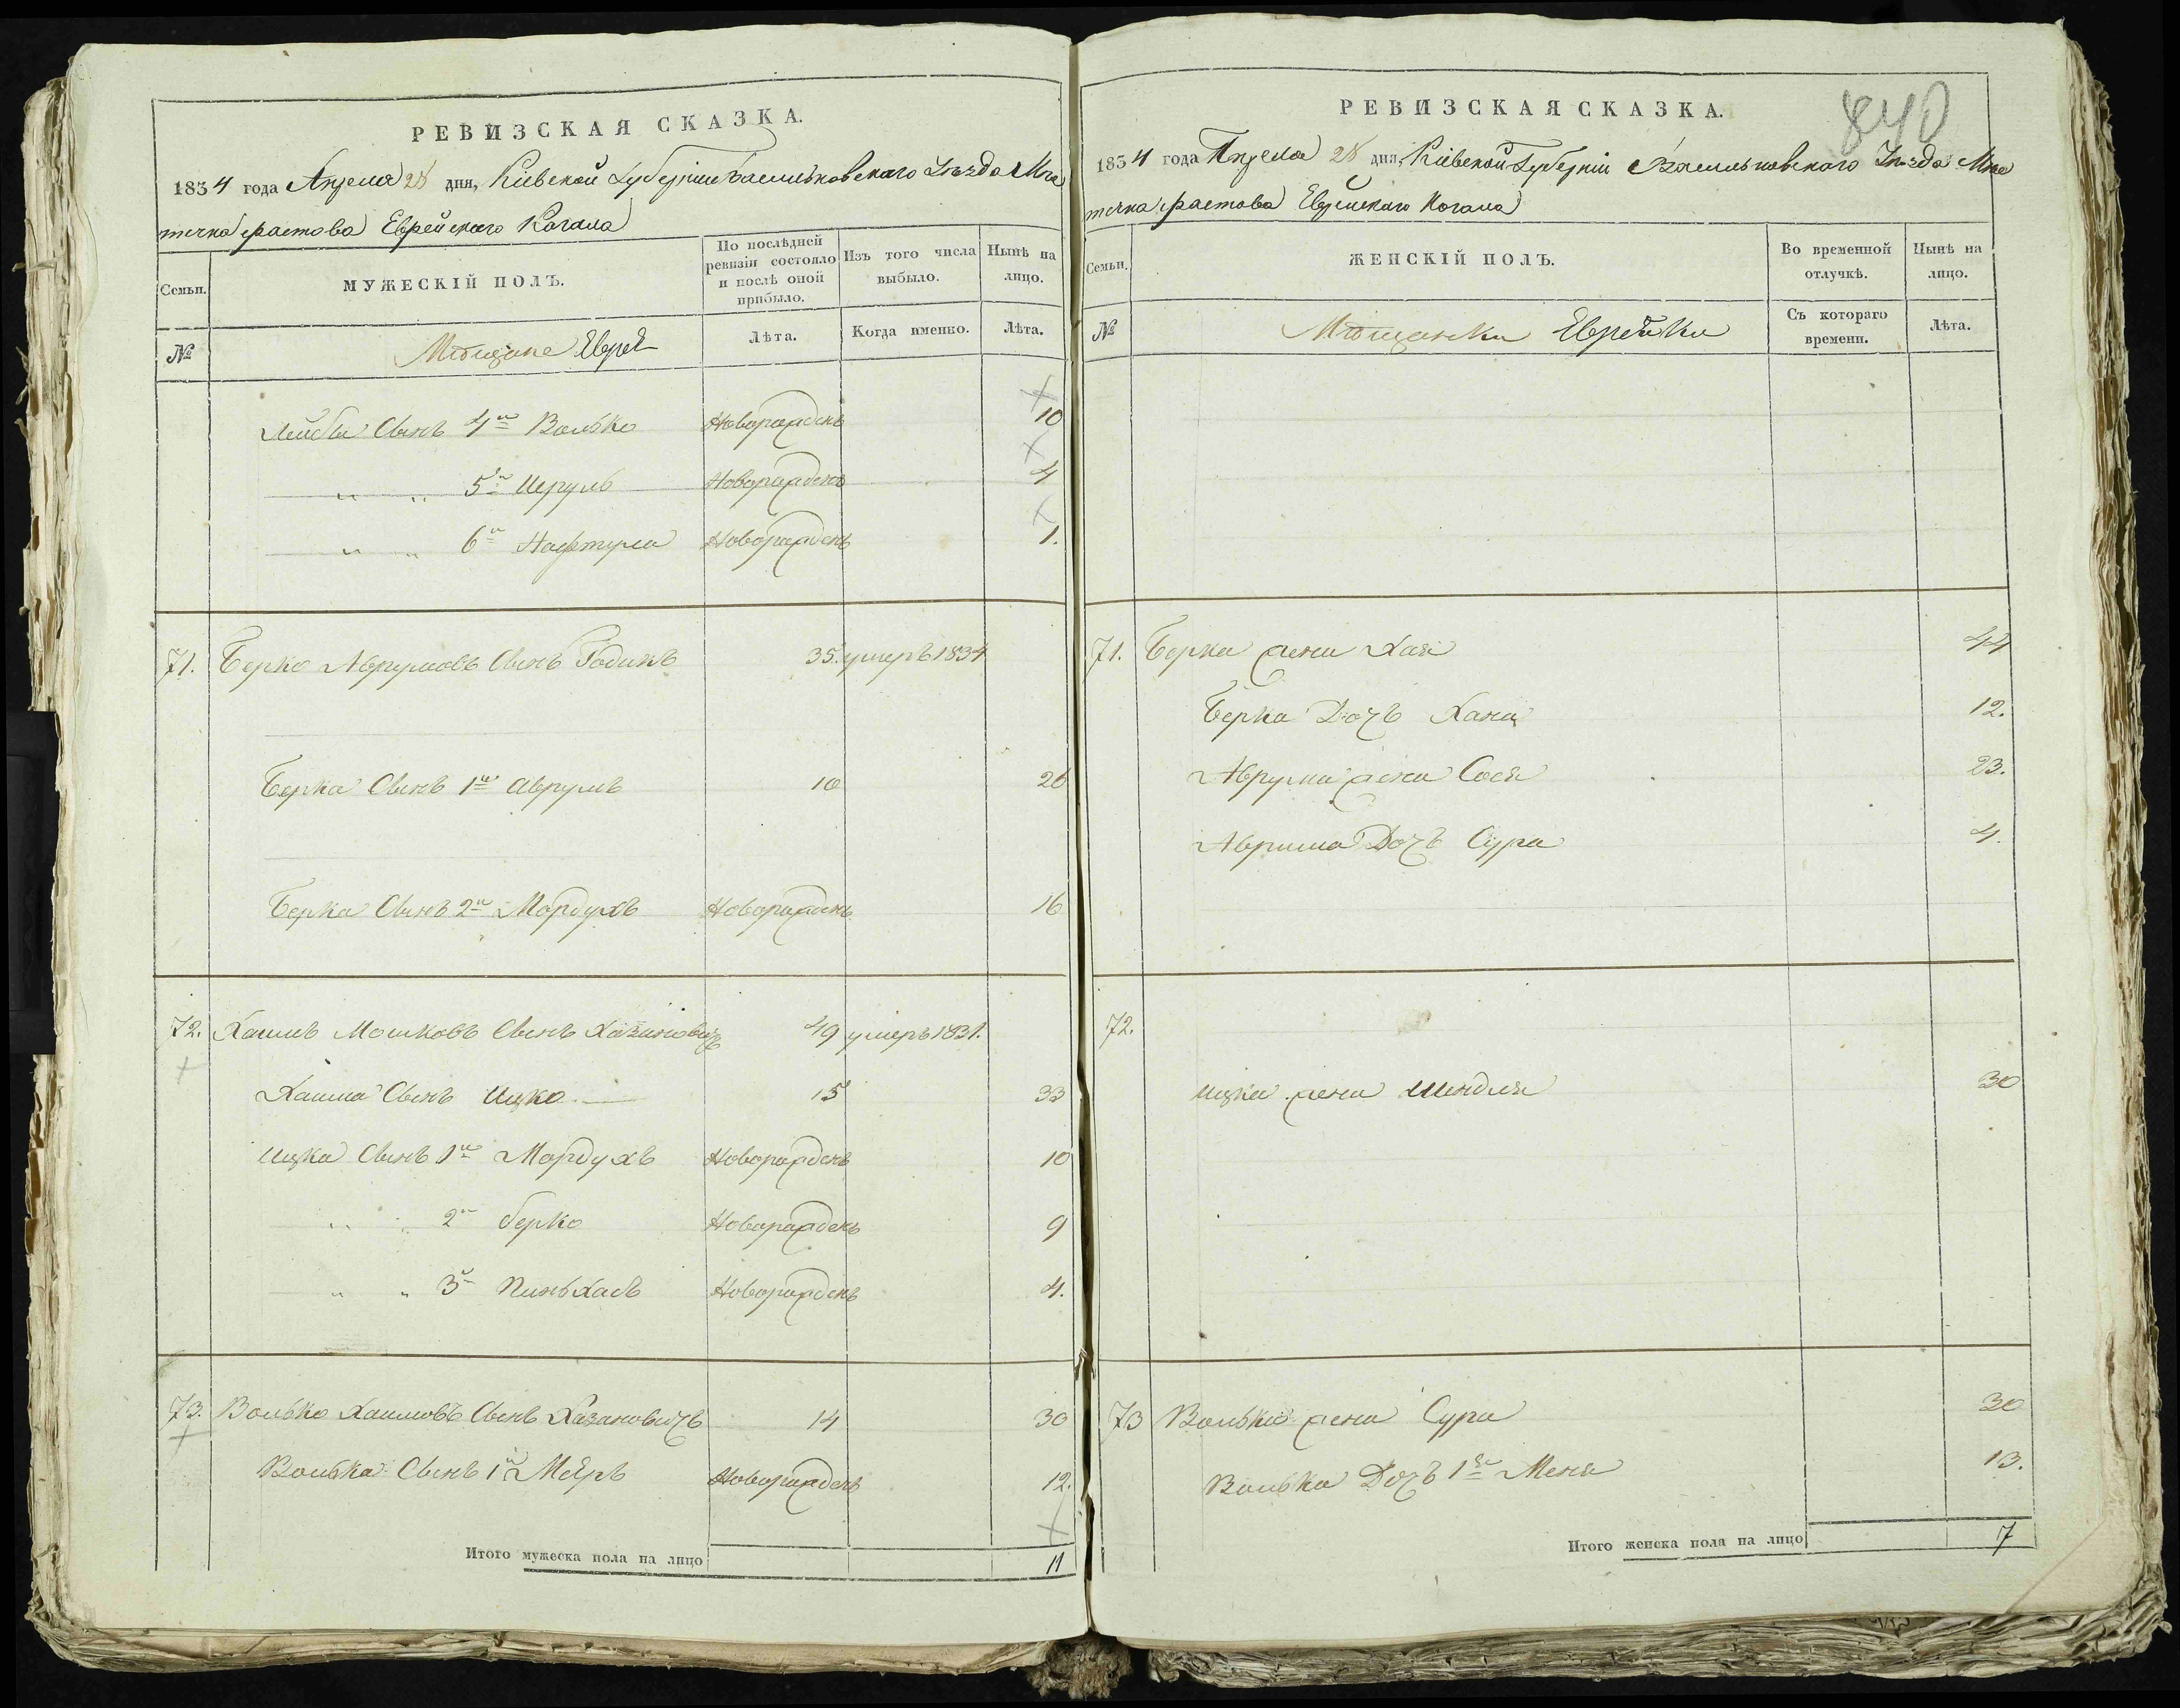 РЕВИЗСКАЯ СКАЗКА.
1834 года Апреля 28 дня, Кіевской Губерніи Васильковского Уезда Мѣс
течка Фастова Еврейского Кагала
Семьи.
МУЖЕСКІЙ ПОЛЪ.
По послѣдней ревизіи состояло и послѣ оной прибыло.
Изъ того числа выбыло.
Нынѣ на лицо.
№
Мѣщане Евреи
Лѣта.
Когда именно.
Лѣта.
Лейбы Сынъ 4й Волько Новорожденъ 10
„ „ 5й Исрулъ Новорожденъ 4
„ „ 6й Нафтула Новорожденъ 1.
71. Берко Аврумовъ Сынъ Родинъ 35. умеръ 1834
Берка Сынъ 1й Аврумъ 10 26
Берка Сынъ 2й Мордухъ Новорожденъ 16
72. Хаимъ Мошковъ Сынъ Хазановичъ 49 умеръ 1831.
Хаима Сынъ Ицко 15 33
Ицка Сынъ 1й Мордухъ Новорожденъ 10
„ „ 2й Берко Новорожденъ 9
„ „ 3й Пиньхасъ Новорожденъ 4.
73. Волько Хаимовъ Сынъ Хазановичъ 14 30
Волька Сынъ 1й Меѣръ Новорожденъ 12.
Итого мужеска пола на лицо 11
840
РЕВИЗСКАЯ СКАЗКА.
1834 года Апреля 28 дня, Кіевской Губерніи Васильковского Уезда Мѣс
течка Фастова Еврейскаго Кагала
Семьи.
ЖЕНСКІЙ ПОЛЪ.
Во временной отлучкѣ.
Нынѣ на лицо.
№
Мѣщанки Еврейки
Съ котораго времени.
Лѣта.
71. Берка жена Хая 44
Берка Дочъ Хана 12.
Аврума жена Сося 23.
Аврума Дочъ Сура 4.
72.
Ицка жена Шендля 30
73 Волька жена Сура 30
Волька Дочъ 1я Меня 13.
Итого женска пола на лицо 7